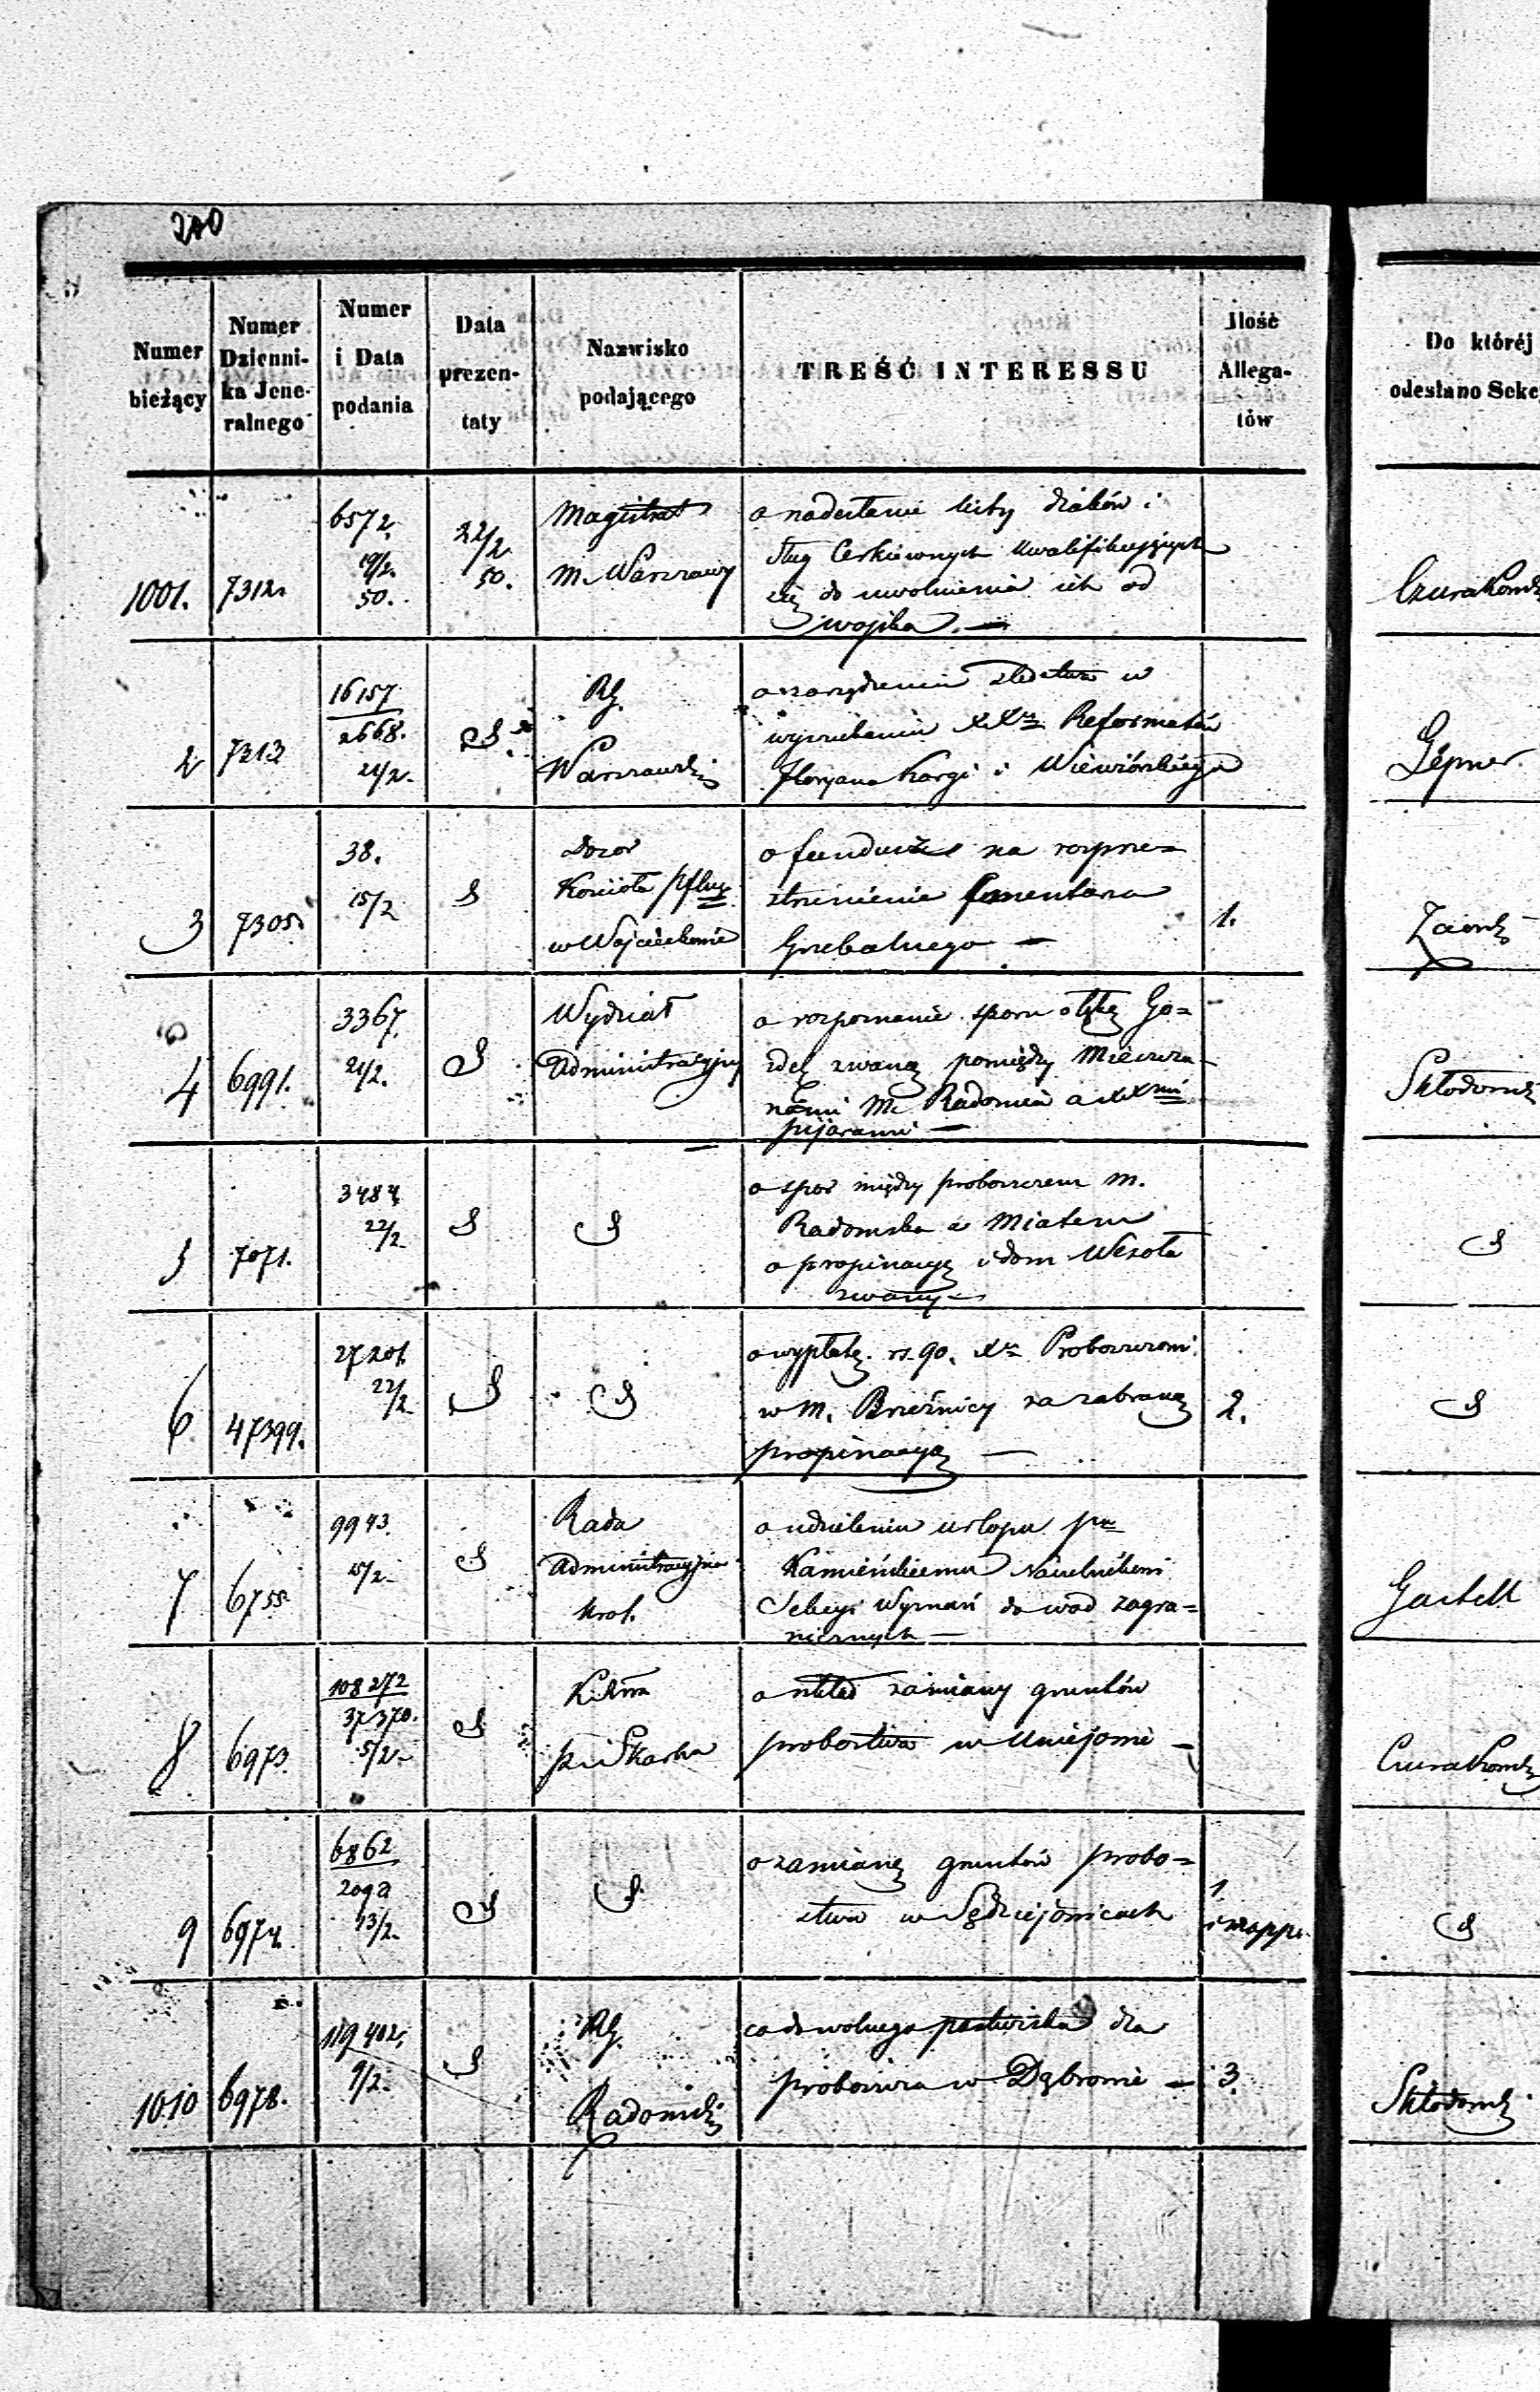 200
Numer bieżący
Numer Dzienni-ka Jene-ralnego
Numer i Data podania
Data prezen-taty
Nazwisko podającego
TREŚĆ INTERESSU
Ilość Allega-tów
Do któréj
odesłano Sekc
1001.
7312.
6572.
19/2.
50.
22/2
50.
Magistrat
m. Warszawy
o nadesłanie listy diaków i
sług Cerkiewnych kwalifikujących
się do uwolnienia ich od
wojska. —
2
7313
16157
2668.
21/2.
Rg.
Warszawski
o zarządzenie śledztwa w
Reformatów
Floryana Kargi i Wiewiórskiego
Gepner
3
7305.
38.
15/2
Dozor
Kościoła
w Wojciechowie
o fundusz na rozprze=
strzenienie Cmentarza
Grzebalnego —
1.
4
6991.
3367.
21/2.
Wydział
Administracyjny
o rozpoznanie sporu o łąkę Go=
zdek zwaną pomiędzy Mieszcza-
nami M. Radomia a XX
pijarami —
Skłodowsk
5
7071.
3484
22/2
o spor między proboszczem m.
Radomska a Miastem
o propinacyę i dom Wesoła
zwany —
6
47399.
27201.
22/2
o wypłatę rs. 90. Proboszczowi
w M. Brzeźnicy za zabraną
propinacyą —
2.
7
6755
9943.
15/2
Rada
Administracyjna
Krol.
o udzieleniu urlopu
Kamieńskiemu Naczelnikowi
Sekcyi Wyznań do wod zagra=
nicznych —
8
6973.
108272
37370.
5/2.
Skarbu
o układ zamiany gruntów
probostwa w Uniejowie —
9
6974.
6862
13/2.
o zamianę gruntów probo=
stwa w Sędziejowicach
1
i mappa
1010
6978.
119402.
9/2.
Rg.
Radomski
co do wolnego pastwiska dla
proboszcza w Dąbrowie —
3.
Skłodowski